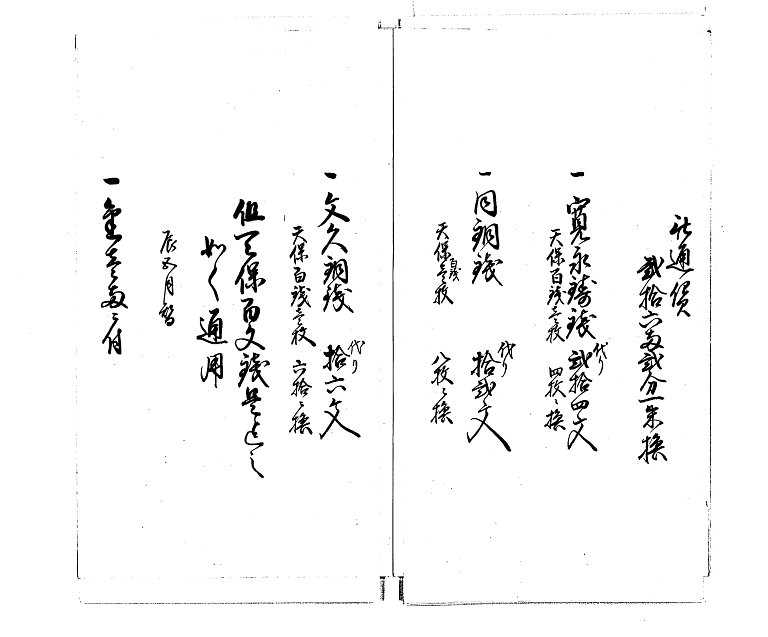 社通價
弐拾六両弐分一朱換
一 寛永鋳銭 代り 弐拾四文
天保百銭壱枚 四枚ニ換
一 同銅銭 代り 拾弐文
天保百銭壱枚 八枚ニ換
一 文久銅銭 代り 拾六文
天保百銭壱枚 六拾ニ換
但天保百文銭是迄之
如く通用
辰五月
一 金壱両ニ付